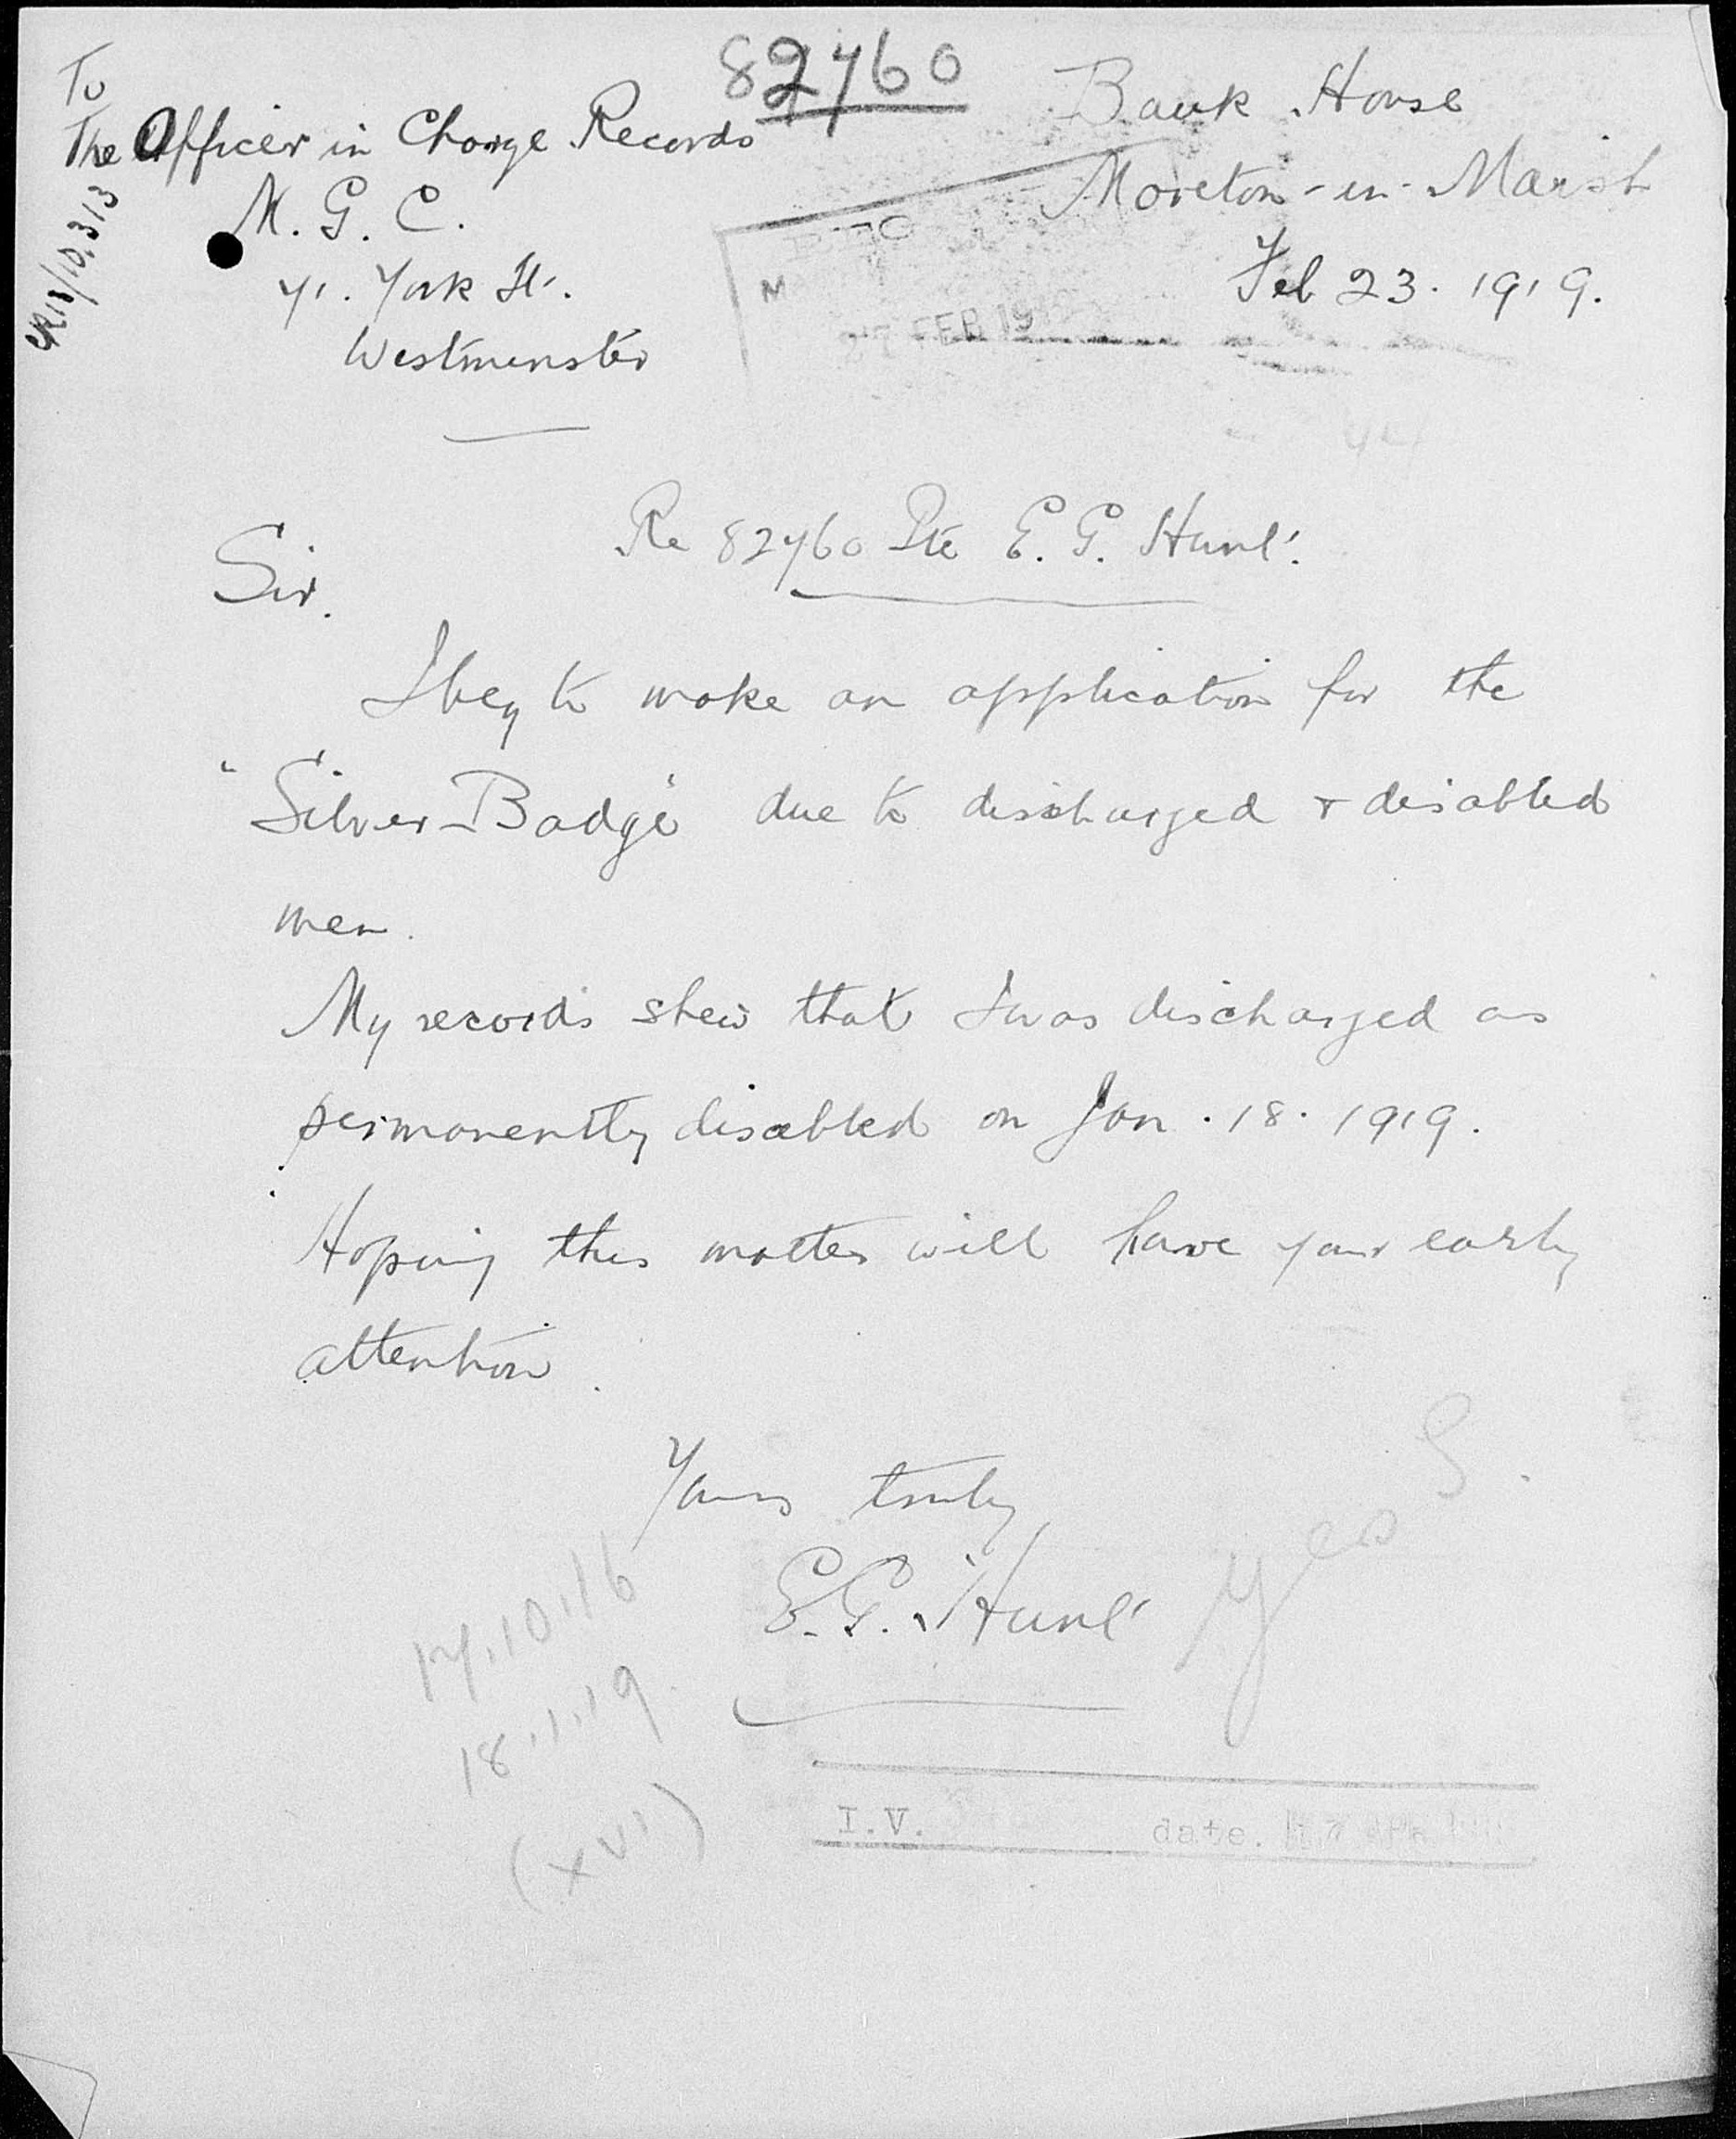 82760
To
The Officer in Charge Records
M. G. C.
71. York St.
Westminster
Bank House
Moreton-in-Marsh
Feb 23. 1919.
REC
27 FEB 19
Re 82760 Pte E. G. Hunt.
Sir.
I beg to make an application for the
"Silver-Badge" due to discharged & disabled
men.
My records shew that I was discharged as
permanently disabled on Jan. 18. 1919.
Hoping this matter will have your early
attention.
Yours truly
E. G. Hunt
Yes
17.10.16
18.1.19
(XVI)
I.V. date.